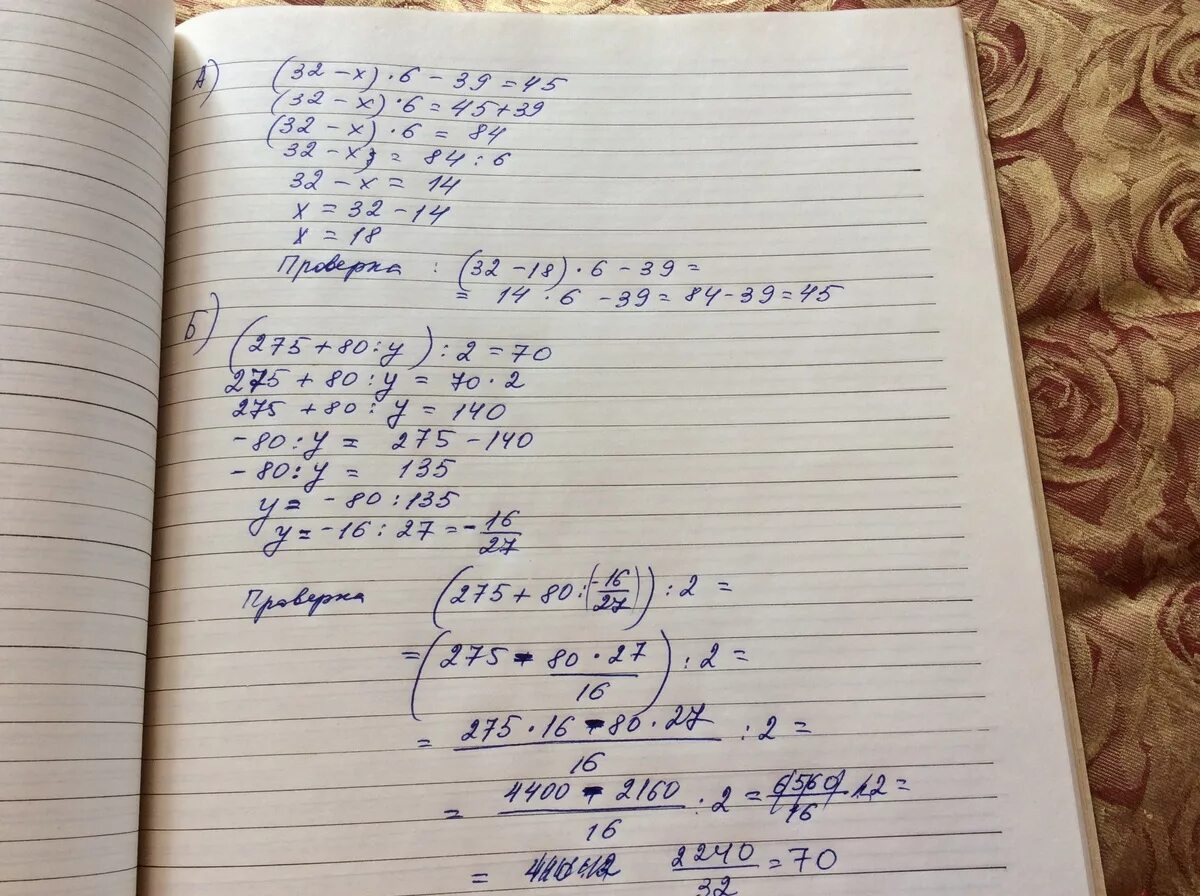 А) (32 - x) · 6 - 39 = 45
(32 - x) · 6 = 45 + 39
(32 - x) · 6 = 84
32 - x = 84 : 6
32 - x = 14
x = 32 - 14
x = 18
Проверка : (32 - 18) · 6 - 39 =
= 14 · 6 - 39 = 84 - 39 = 45
Б) (275 + 80 : y) : 2 = 70
275 + 80 : y = 70 · 2
275 + 80 : y = 140
- 80 : y = 275 - 140
- 80 : y = 135
y = - 80 : 135
y = - 16 : 27 = - 16/27
Проверка (275 + 80 : (-16/27)) : 2 =
= (275 - 80 · 27/16) : 2 =
= 275 · 16 - 80 · 27/16 : 2 =
= 4400 - 2160/16 : 2 = 6560/16 : 2 =
= 2240/32 = 70